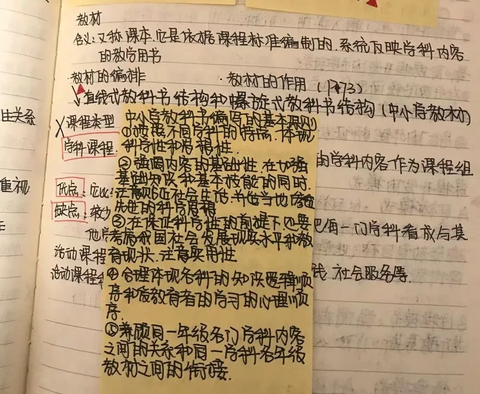 教材
含义:又称课本,它是依据课程标准编制的、系统反映学科内容
的教学用书
教材的编排 ·教材的作用(P173)
直线式教科书结构和螺旋式教科书结构(中小学教材)
课程类型
学科课程
由学科内容作为课程组
优点:
缺点:较少
把每一门学科看成与其
他学
活动课程
活动课程
社会服务等.
由关系
重视
中小学教科书编写的基本原则
①按照不同学科的特点,体现
科学性和思想性.
②强调内容的基础性.在加强
基础知识和基本技能的同时,
注意贴近社会生活,并恰当地渗透
先进的科学思想
③在保证科学性的前提下,还要
考虑我国社会发展现实水平和教
育现状,注意实用性
④合理体现各科的知识逻辑顺
序和受教育者的学习的心理顺
序.
⑤兼顾同一年级各门学科内容
之间的关系和同一学科各年级
教材之间的衔接.